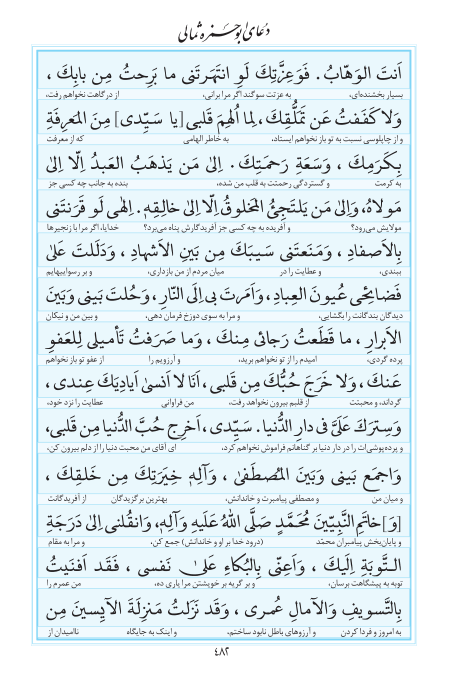 دعای ابوحمزه ثمالی
اَنتَ الوَهّابُ . فَوَعِزَّتِكَ لَوِ انتَهَرتَنی ما بَرِحتُ مِن بابِكَ ،
بسیار بخشنده‌ای، به عزتت سوگند اگر مرا برانی، از درگاهت نخواهم رفت،
وَلا كَفَفتُ عَن تَمَلُّقِكَ ، لِما اُلهِمَ قَلبی [یا سَیِّدی] مِنَ المَعرِفَةِ
و از چاپلوسی نسبت به تو باز نخواهم ایستاد، به خاطر الهامی که از معرفت
بِكَرَمِكَ ، وَسَعَةِ رَحمَتِكَ . اِلىٰ مَن یَذهَبُ العَبدُ اِلّا اِلىٰ
به کرمت و گستردگی رحمتت به قلب من شده، بنده به جانب چه کسی جز
مَولاهُ، وَاِلىٰ مَن یَلتَجِئُ المَخلوقُ اِلّا اِلىٰ خالِقِهِ . اِلٰهی لَو قَرَنتَنی
مولایش می‌رود؟ و آفریده به چه کسی جز آفریدگارش پناه می‌برد؟ خدایا، اگر مرا با زنجیرها
بِالاَصفادِ ، وَمَنَعتَنی سَیبَكَ مِن بَینِ الاَشهادِ ، وَدَلَلتَ عَلىٰ
ببندی، و عطایت را در میان مردم از من بازداری، و بر رسواییهایم
فَضائِحی عُیونَ العِبادِ ، وَاَمَرتَ بی اِلَى النّارِ ، وَحُلتَ بَینی وَبَینَ
دیدگان بندگانت را بگشایی، و مرا به سوی دوزخ فرمان دهی، و بین من و نیکان
الاَبرارِ ، ما قَطَعتُ رَجائی مِنكَ ، وَما صَرَفتُ تَأمیلی لِلعَفوِ
پرده گردی، امیدم را از تو نخواهم برید، و آرزویم را از عفو تو باز نخواهم
عَنكَ ، وَلا خَرَجَ حُبُّكَ مِن قَلبی ، اَنَا لا اَنسىٰ اَیادِیَكَ عِندی ،
گرداند، و محبتت از قلبم بیرون نخواهد رفت، من فراوانی عطایت را نزد خود،
وَسِترَكَ عَلَیَّ فی دارِ الدُّنیا . سَیِّدی ، اَخرِج حُبَّ الدُّنیا مِن قَلبی،
و پرده‌پوشی‌ات را در دار دنیا بر گناهانم فراموش نخواهم کرد. ای آقای من محبت دنیا را از دلم بیرون کن،
وَاجمَع بَینی وَبَینَ المُصطَفىٰ ، وَآلِهِ خِیَرَتِكَ مِن خَلقِكَ ،
و میان من و مصطفی پیامبرت و خاندانش، بهترین برگزیدگان از آفریدگانت
[وَ] خاتَمِ النَّبِیّینَ مُحَمَّدٍ صَلَّی اللّٰهُ عَلَیهِ وَآلِهِ، وَانقُلنی اِلىٰ دَرَجَةِ
و پایان‌بخش پیامبران محمّد (درود خدا بر او و خاندانش) جمع کن. و مرا به مقام
التَّوبَةِ اِلَیكَ ، وَاَعِنّی بِالبُكاءِ عَلىٰ نَفسی ، فَقَد اَفنَیتُ
توبه به پیشگاهت برسان، و بر گریه بر خویشتن مرا یاری ده، من عمرم را
بِالتَّسویفِ وَالآمالِ عُمری ، وَقَد نَزَلتُ مَنزِلَةَ الآیِسینَ مِن
به امروز و فردا کردن و آرزوهای باطل نابود ساختم، و اینک به جایگاه ناامیدان از
۴۸۲